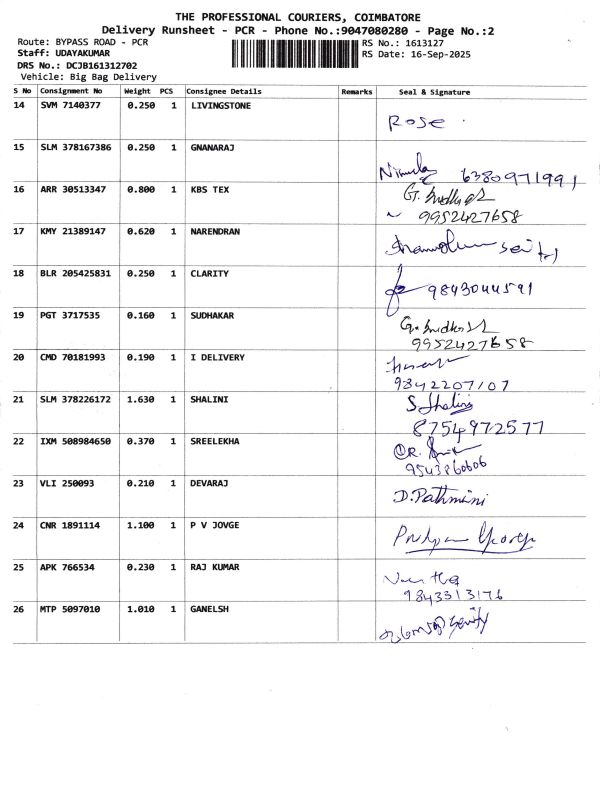 THE PROFESSIONAL COURIERS, COIMBATORE
Delivery Runsheet - PCR - Phone No.:9047080280 - Page No.:2
Route: BYPASS ROAD - PCR
RS No.: 1613127
Staff: UDAYAKUMAR
RS Date: 16-Sep-2025
DRS No.: DCJB161312702
Vehicle: Big Bag Delivery
S No Consignment No Weight PCS Consignee Details Remarks Seal & Signature
14 SVM 7140377 0.250 1 LIVINGSTONE
Rose
15 SLM 378167386 0.250 1 GNANARAJ
6380971991
16 ARR 30513347 0.800 1 KBS TEX
G.
9952427658
17 KMY 21389147 0.620 1 NARENDRAN
18 BLR 205425831 0.250 1 CLARITY
9843044591
19 PGT 3717535 0.160 1 SUDHAKAR
G.
9952427658
20 CMD 70181993 0.190 1 I DELIVERY
9842207107
21 SLM 378226172 1.630 1 SHALINI
S. Shalini
8754972577
22 IXM 508984650 0.370 1 SREELEKHA
R.
9543860606
23 VLI 250093 0.210 1 DEVARAJ
D. Pathmini
24 CNR 1891114 1.100 1 P V JOVGE
25 APK 766534 0.230 1 RAJ KUMAR
9843313176
26 MTP 5097010 1.010 1 GANELSH